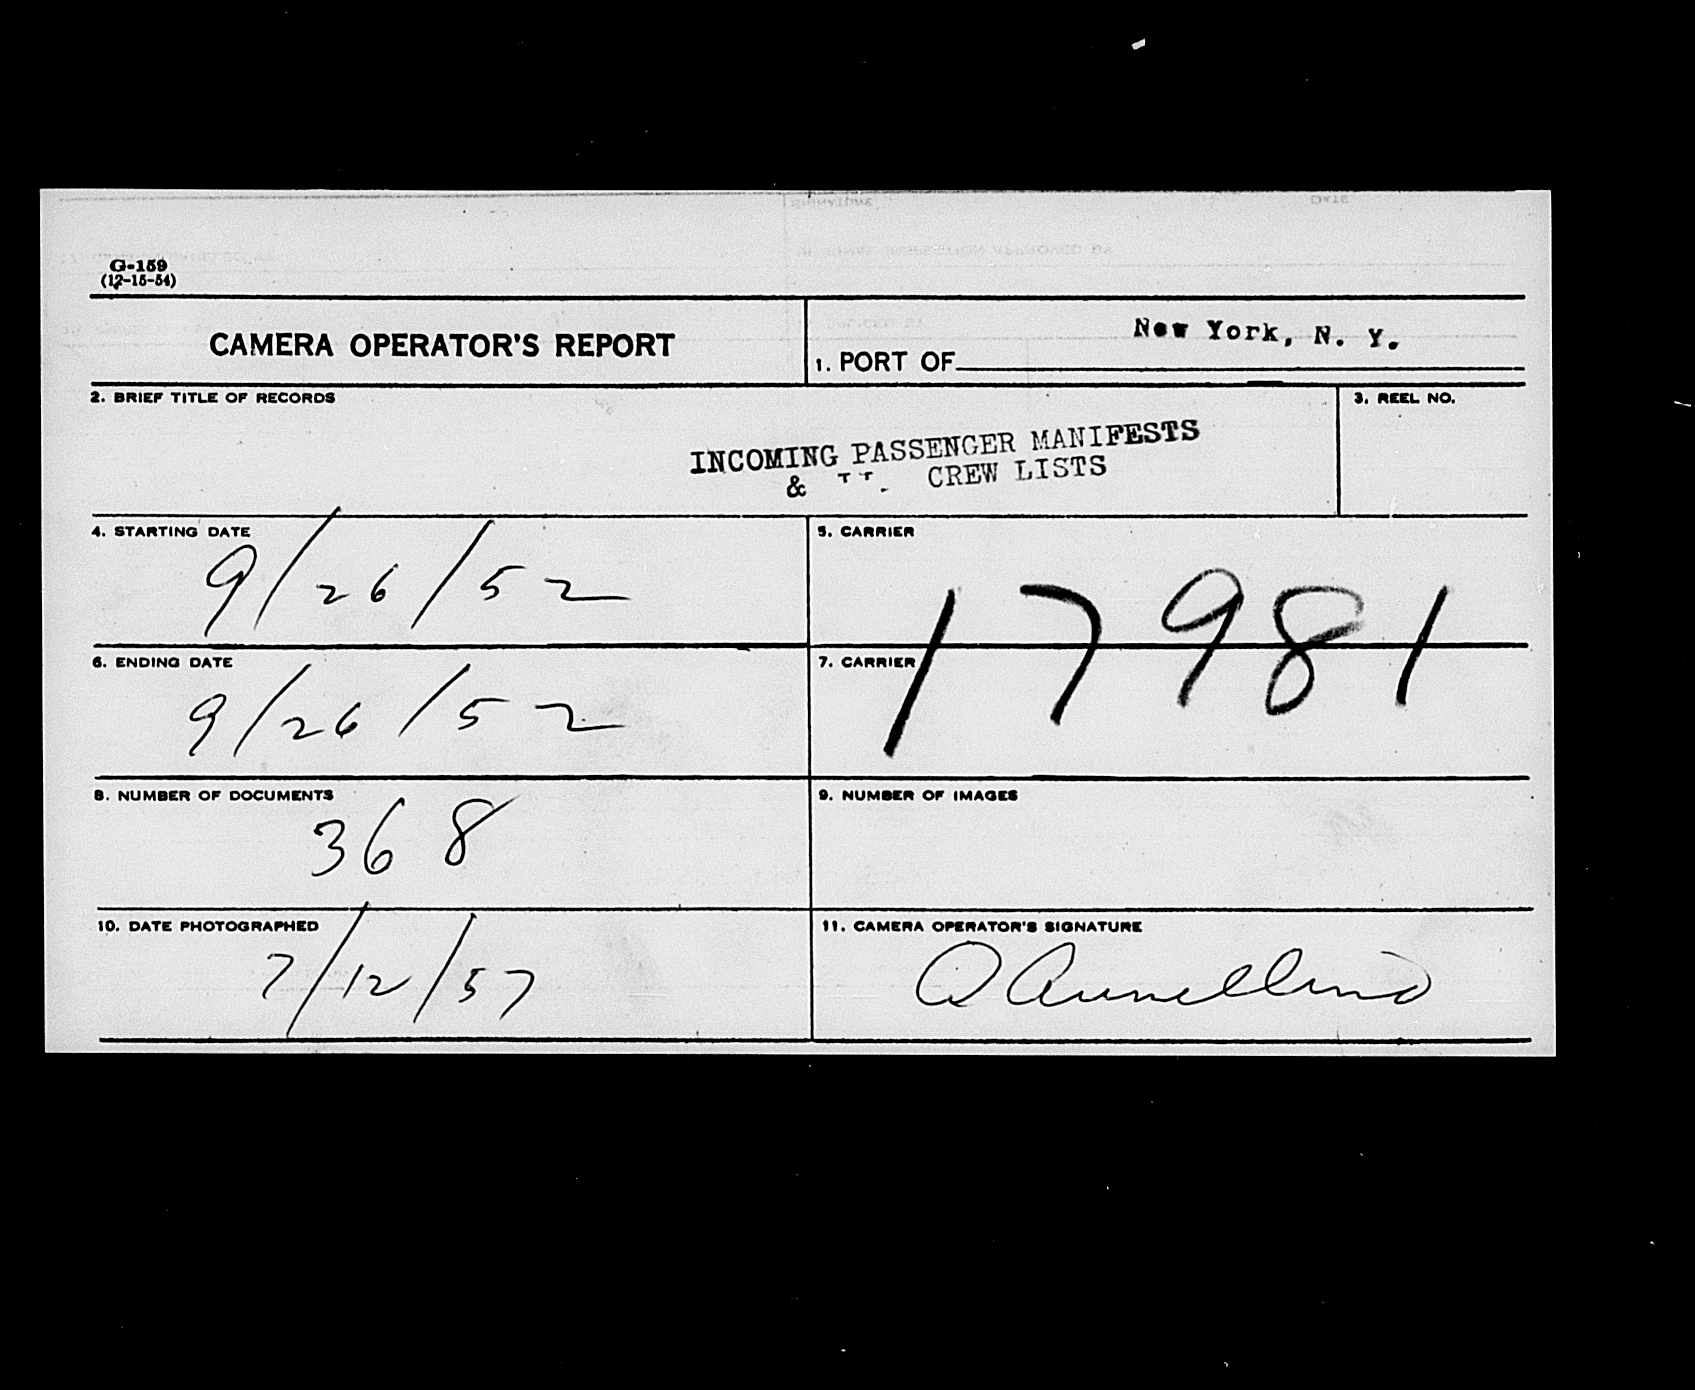 G-159
(12-15-54)
CAMERA OPERATOR'S REPORT
1. PORT OF New York, N. Y.
2. BRIEF TITLE OF RECORDS
INCOMING PASSENGER MANIFESTS
& CREW LISTS
3. REEL NO.
4. STARTING DATE
9/26/52
5. CARRIER
17981
6. ENDING DATE
9/26/52
7. CARRIER
8. NUMBER OF DOCUMENTS
368
9. NUMBER OF IMAGES
10. DATE PHOTOGRAPHED
7/12/57
11. CAMERA OPERATOR'S SIGNATURE